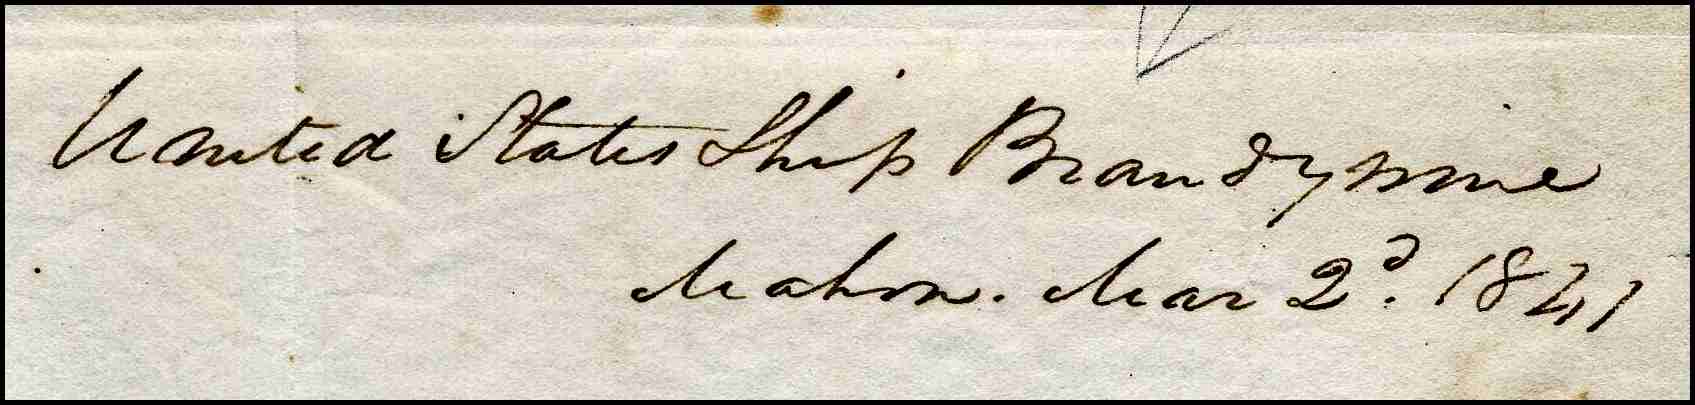 United States Ship Brandywine
Mahon. Mar 2d. 1841